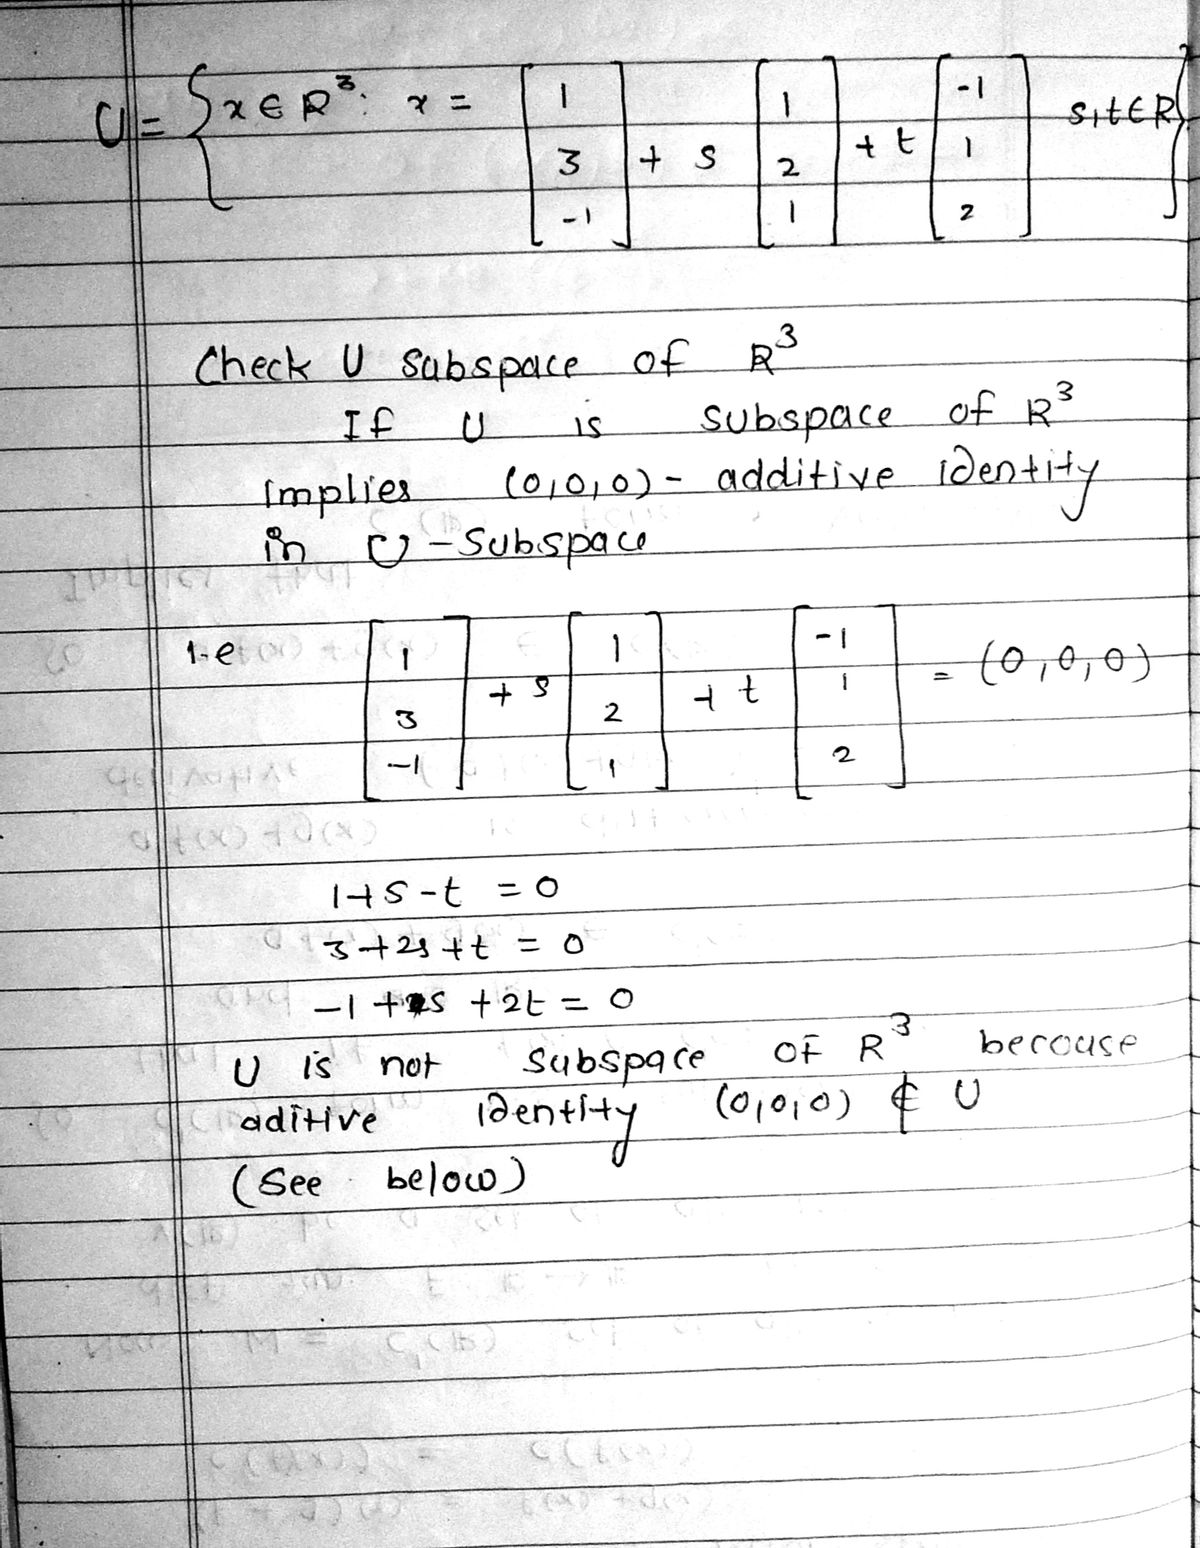 U = { x ∈ R³: x = [1 3 -1] + s [1 2 1] + t [-1 1 2] s,t ∈ R }
Check U subspace of R³
If U is subspace of R³
implies (0,0,0) - additive identity
in U - Subspace
i.e [1 3 -1] + s [1 2 1] + t [-1 1 2] = (0,0,0)
1+s-t = 0
3+2s+t = 0
-1+s+2t = 0
U is not subspace of R³ becouse
aditive identity (0,0,0) ∉ U
(See below)